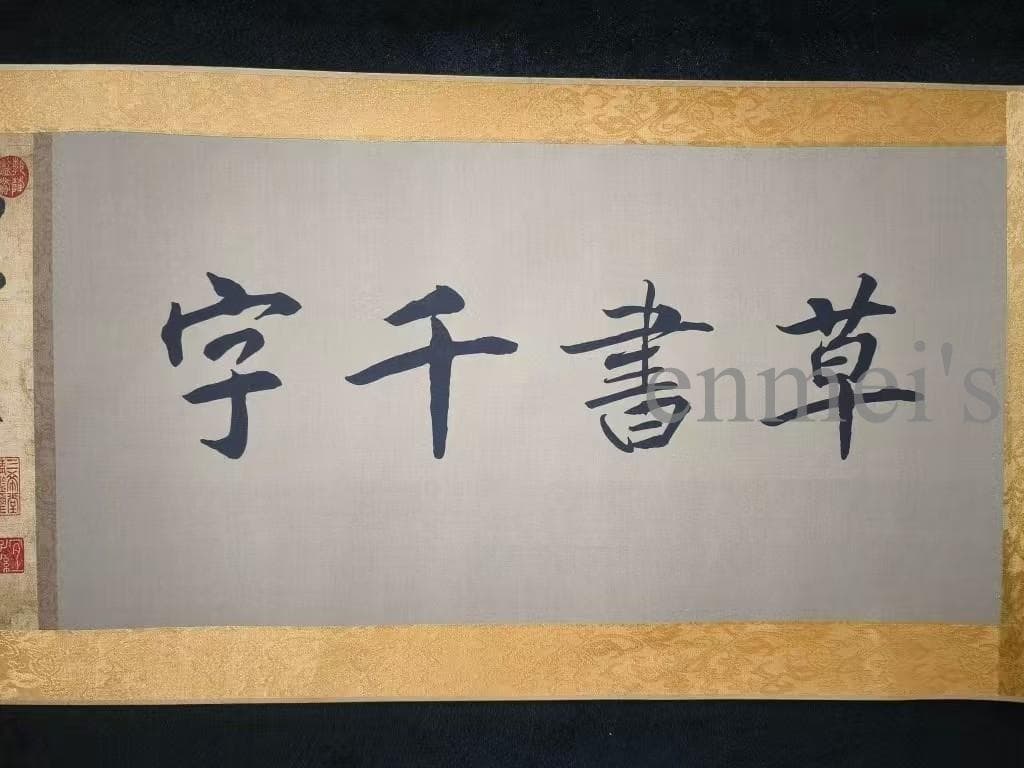 草書千字
enmei's